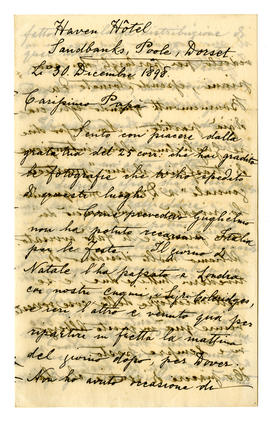 Haven Hôtel
Sandbanks, Poole, Dorset
Li 30. Dicembre 1898.
Carissimo Papà
Sento con piacere dalla
grata tua del 25 corr: che hai gradito
le fotografie che ti ho spedito
di questi luoghi.
Come prevedevi Guglielmo
non ha potuto recarsi in Italia
per le feste. Il giorno di
Natale l'ha passato a Londra
coi nostri cugini
e ieri l'altro è venuto qua per
ripartire in fretta la mattina
del giorno dopo per Dover.
Non ho avuto occasione di